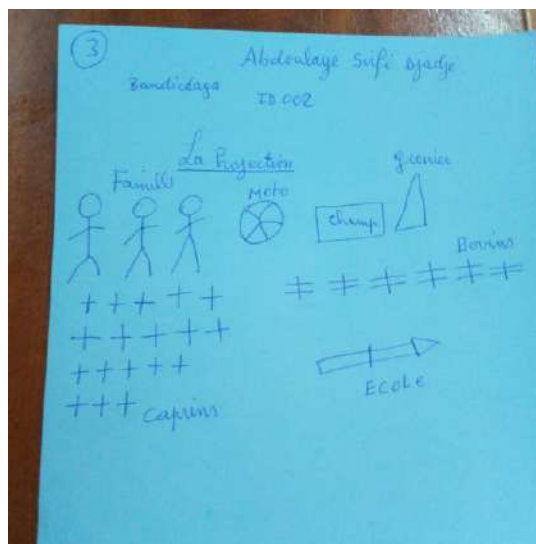 3
Abdoulaye Sufi Djadje
Bandiedaga
ID 002
La Projection
Famille
Moto
Champ
grenier
Bovins
Caprins
Ecole